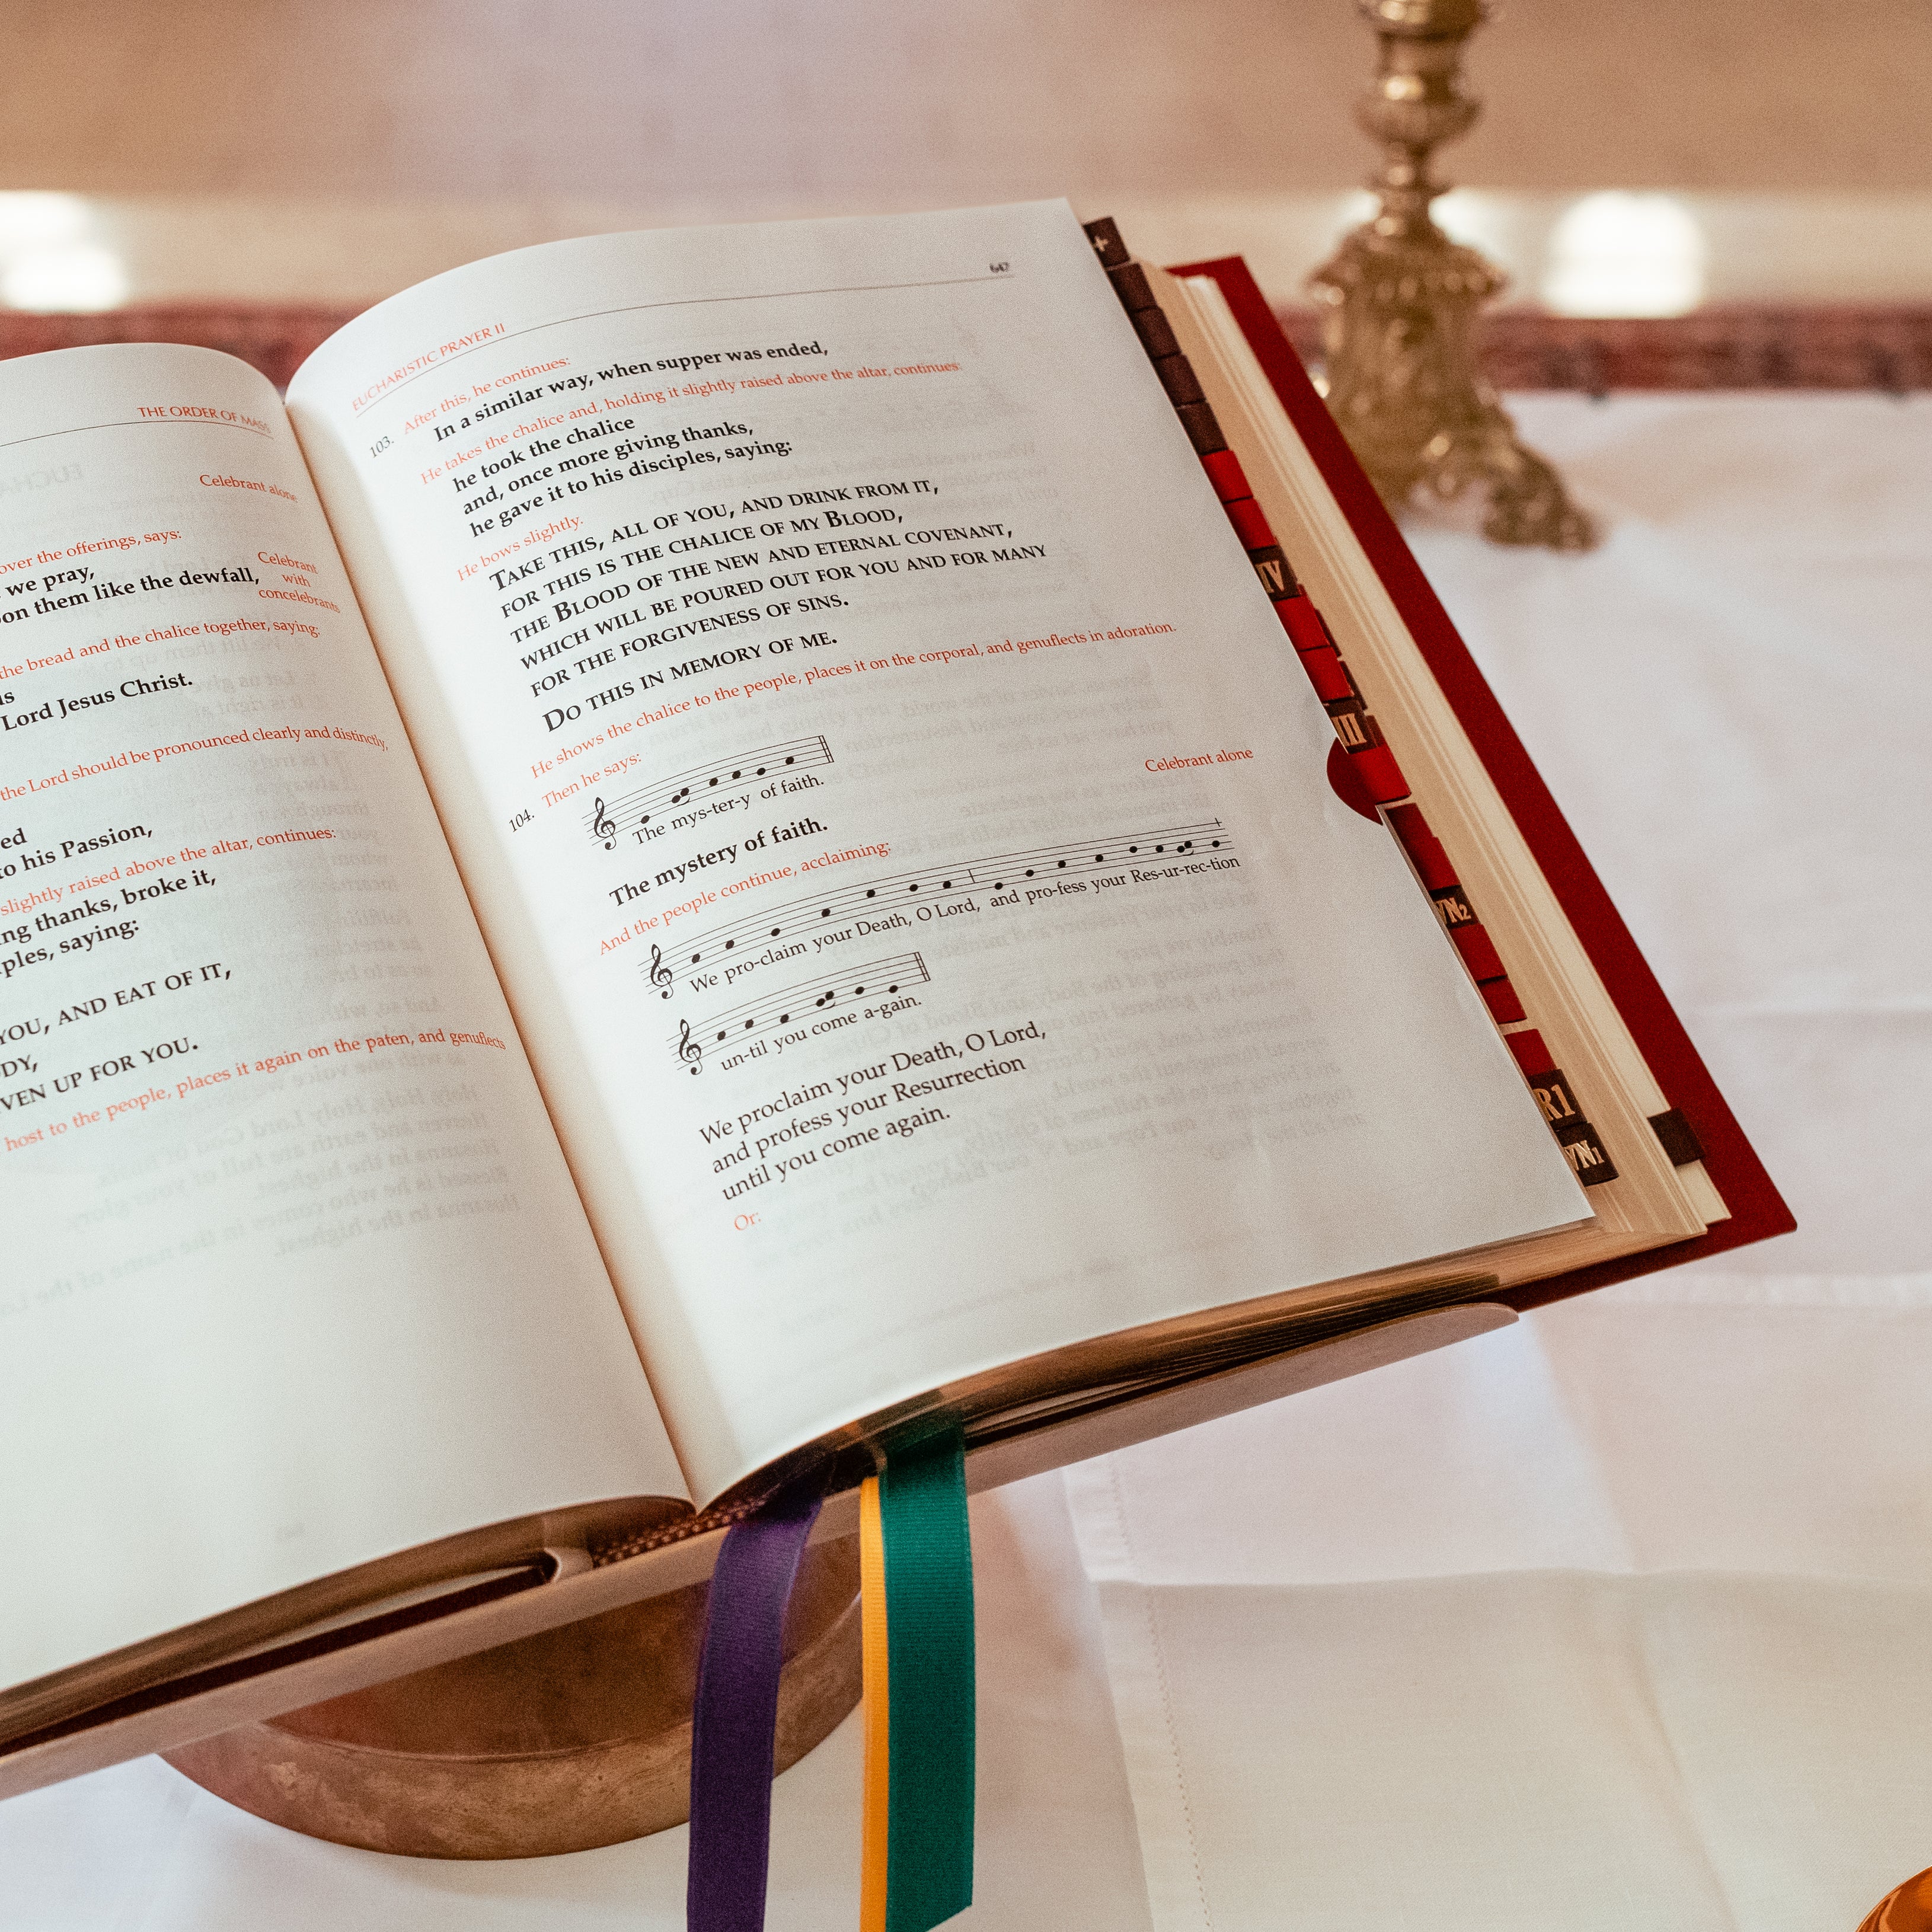 THE ORDER OF MASS
Celebrant alone
over the offerings, says:
Celebrant
with
concelebrants
we pray,
on them like the dewfall,
the bread and the chalice together, saying:
Lord Jesus Christ.
the Lord should be pronounced clearly and distinctly,
to his Passion,
slightly raised above the altar, continues:
thanks, broke it,
saying:
YOU, AND EAT OF IT,
UP FOR YOU.
host to the people, places it again on the paten, and genuflects
EUCHARISTIC PRAYER II
647
103. After this, he continues:
In a similar way, when supper was ended,
He takes the chalice and, holding it slightly raised above the altar, continues:
he took the chalice
and, once more giving thanks,
he gave it to his disciples, saying:
He bows slightly.
TAKE THIS, ALL OF YOU, AND DRINK FROM IT,
FOR THIS IS THE CHALICE OF MY BLOOD,
THE BLOOD OF THE NEW AND ETERNAL COVENANT,
WHICH WILL BE POURED OUT FOR YOU AND FOR MANY
FOR THE FORGIVENESS OF SINS.
DO THIS IN MEMORY OF ME.
He shows the chalice to the people, places it on the corporal, and genuflects in adoration.
104. Then he says:
Celebrant alone
The mys-ter-y of faith.
The mystery of faith.
And the people continue, acclaiming:
We pro-claim your Death, O Lord, and pro-fess your Res-ur-rec-tion
un-til you come a-gain.
We proclaim your Death, O Lord,
and profess your Resurrection
until you come again.
Or:
IV
III
R1